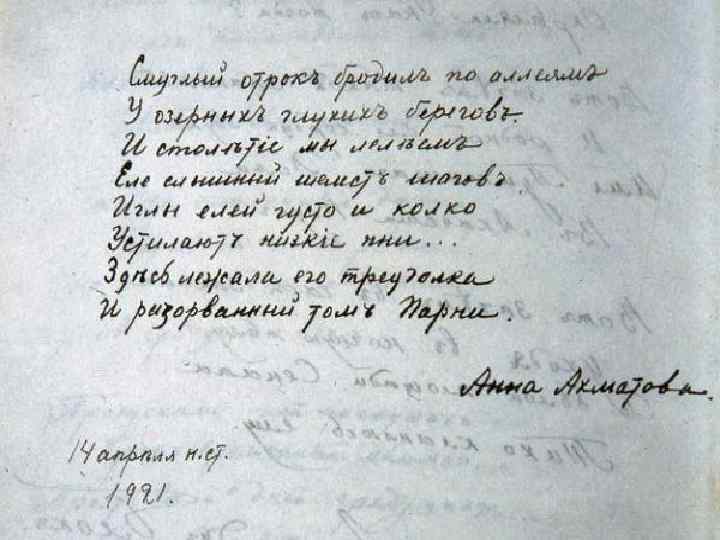 Смуглый отрокъ бродилъ по аллеямъ
У озерныхъ глухихъ береговъ.
И столѣтіе мы лелѣемъ
Еле слышный шелестъ шаговъ.
Иглы елей густо и колко
Устилаютъ низкіе пни...
Здѣсь лежала его треуголка
И разорванный томъ Парни.
Анна Ахматова.
14 апрѣля н.ст.
1921.